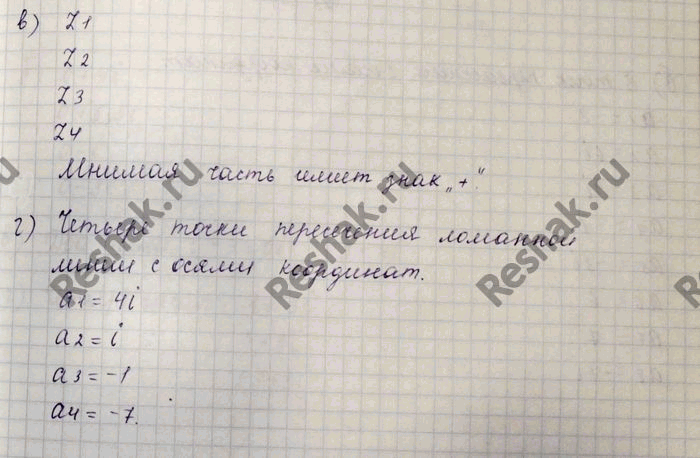 в) Z1
Z2
Z3
Z4
Мнимая часть имеет знак „+".
г) Четыре точки пересечения ломанной
линии с осями координат.
a1 = 4i
a2 = i
a3 = -1
a4 = -7.
Reshak.ru
Reshak.ru
Reshak.ru